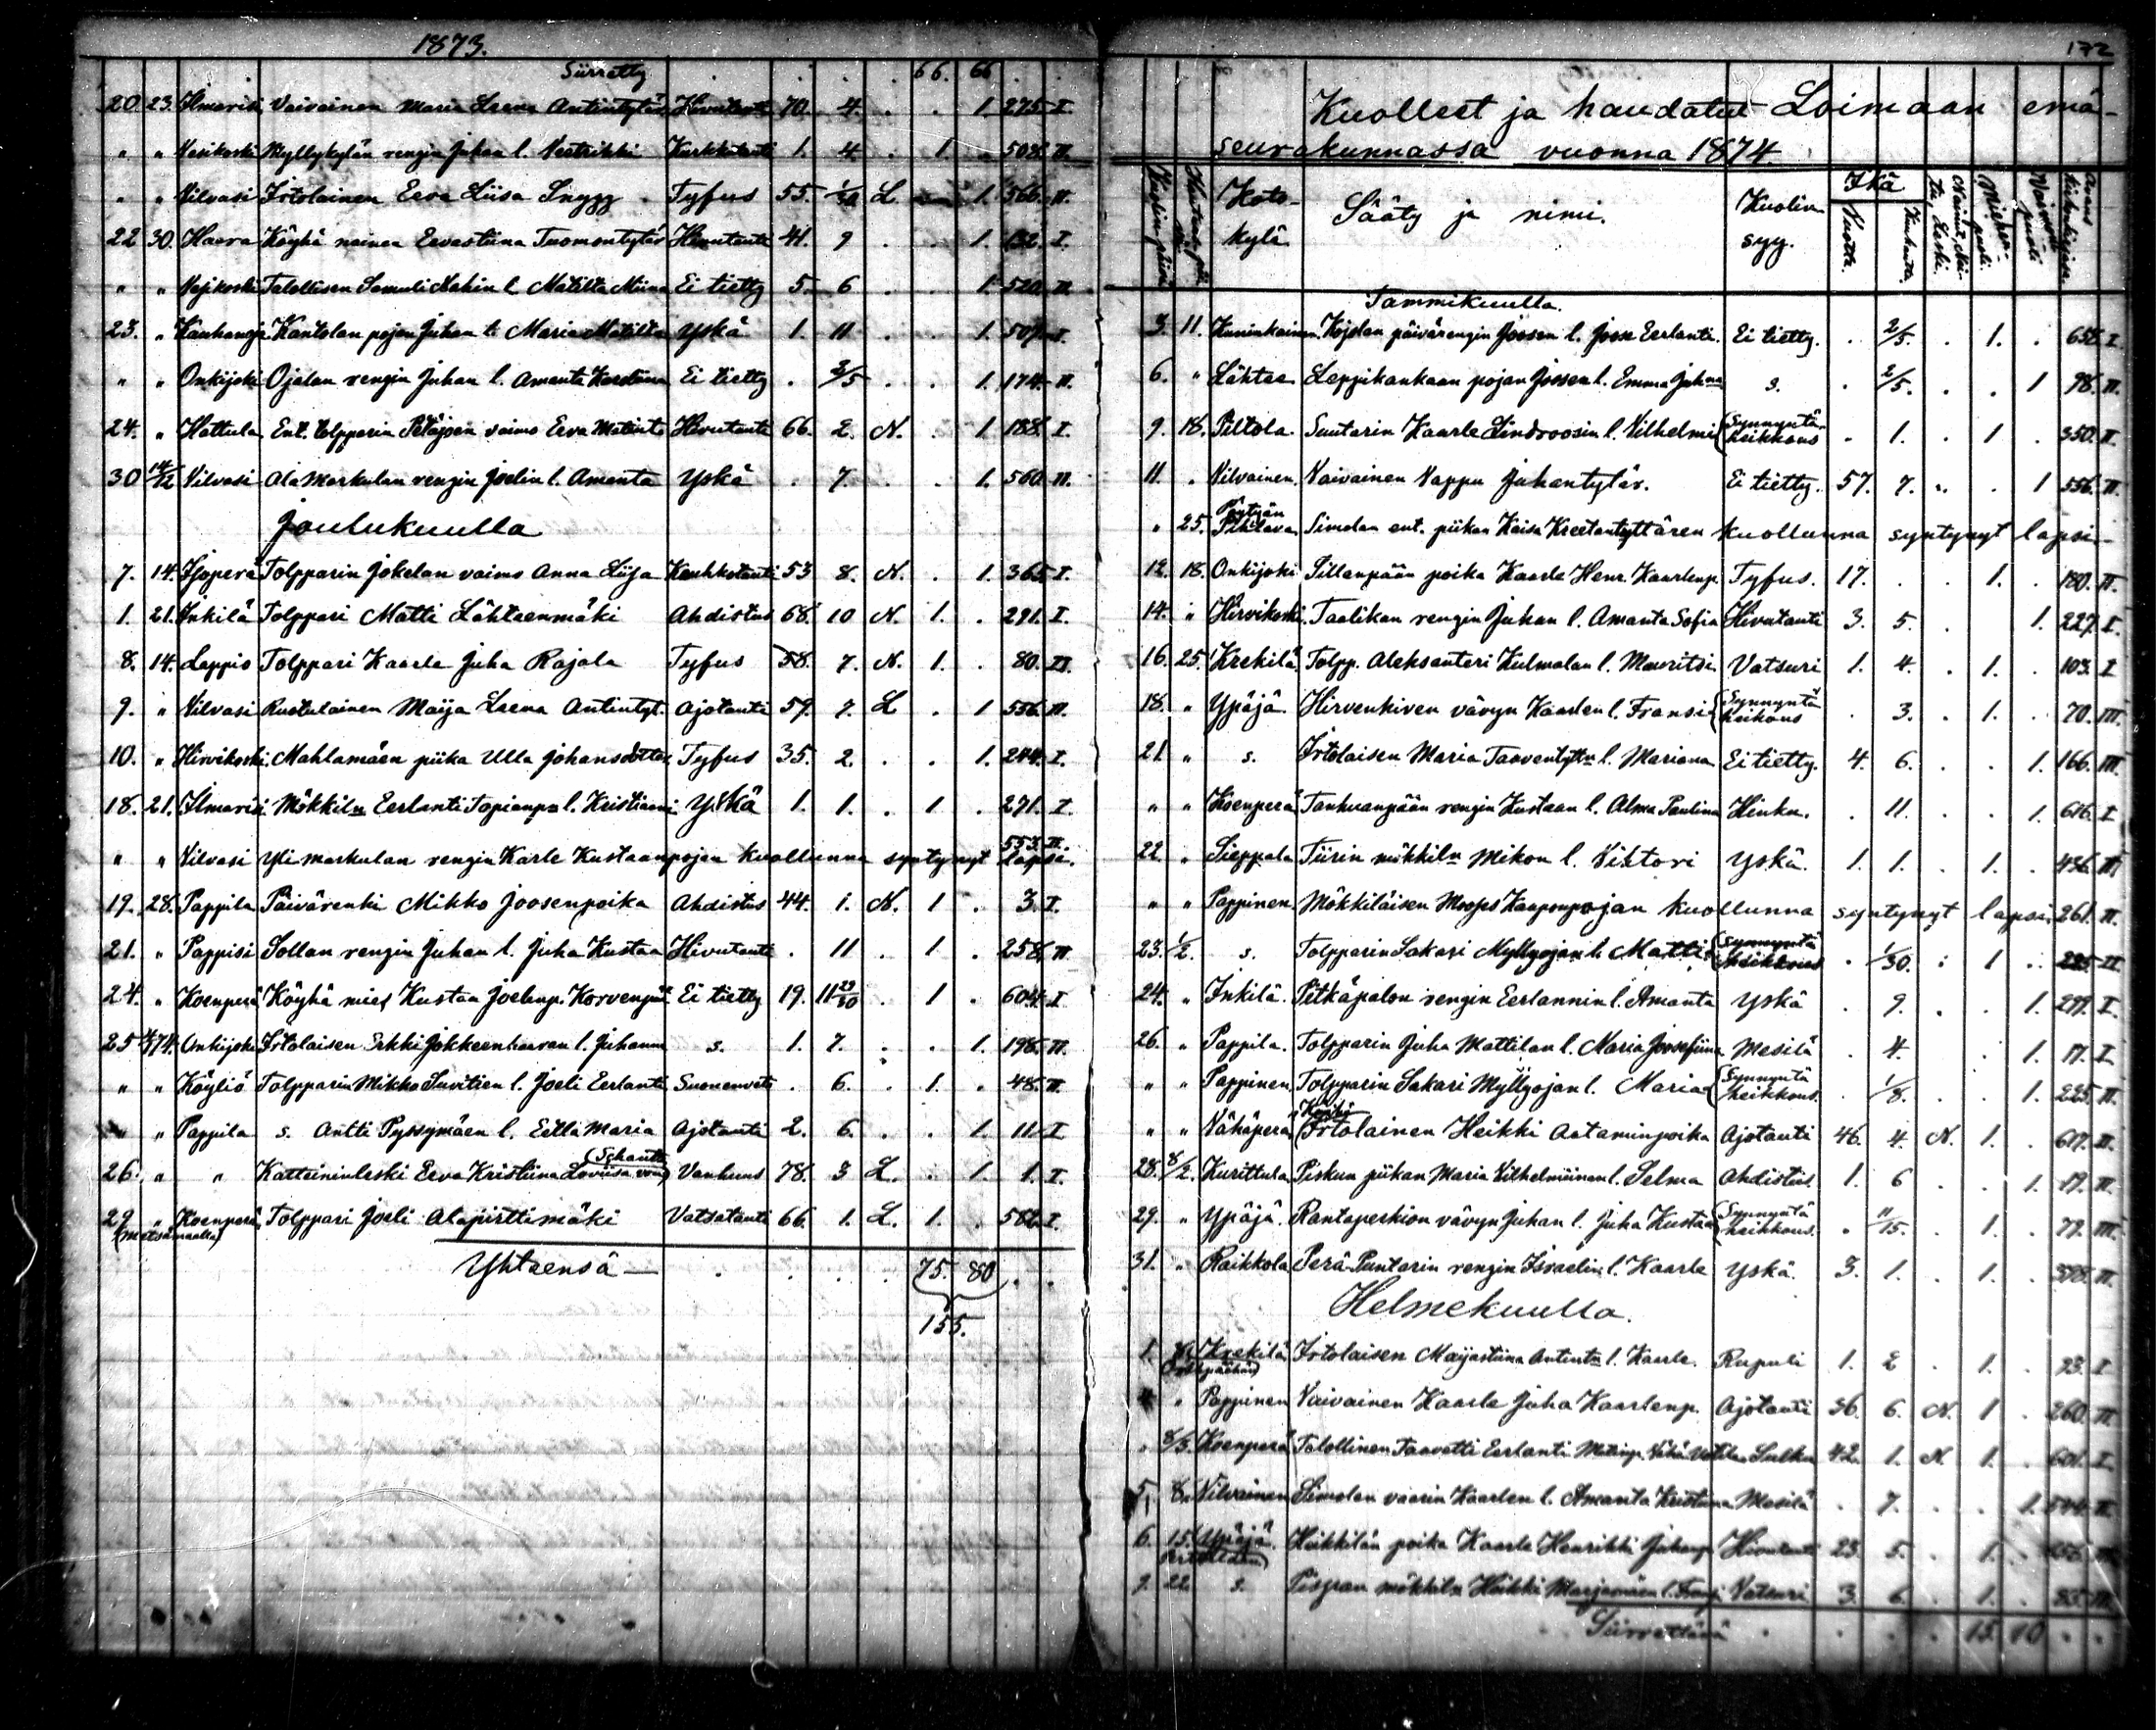 1873.
Siirretty . . . . 66. 66 . .
20. 23. Ilmarisi Vaivainen Maria Leena Antintytär Hivutauti 70. 4. . . 1. 275. I.
" " Vesikoski Myllykylän rengin Juhan l. Kurkkutauti 1. 4. . 1. . 508. II.
" " Vilvasi Irtolainen Eeva Liisa Snygg Tyfus 55. 1/30 L. 1. 566. II.
22 30. Haara Köyhä nainen Eevastiina Tuomontytär Hivutauti 41. 9 . . 1. 132. I.
" " Talollisen l. Matilta Miina Ei tietty 5. 6 . . 1. 520. II.
23. " Kauhanoja Kantolan pojan Juhan l. Maria Matilta Yskä 1. 11 . . 1. 507. I.
" " Onkijoki Ojalan rengin Juhan l. Amanta Ei tietty . 2/5 . . 1. 174. II.
24. " Hattula Ent. tolpparin vaimo Eeva Hivutauti 66. 2. N. . 1. 188. I.
30 14/12 Vilvasi Ala Markulan rengin Joelin l. Amanta Yskä . 7. . . 1. 560. II.
Joulukuulla
7. 14. Isoperä Tolpparin Jokelan vaimo Anna Liisa Keuhkotauti 53 8. N. . 1. 365. I.
1. 21. Inkilä Tolppari Matti Lähteenmäki Ahdistus 68. 10 N. 1. . 291. I.
8. 14. Leppio Tolppari Kaarle Juha Rajala Tyfus 38. 7. N. 1. . 80. II.
9. " Vilvasi Ruotulainen Maija Leena Antintyt. Ajotauti 59. 7. L . 1 556. II.
10. " Hirvikoski Mahlamäen piika Ulla Johansdotter Tyfus 35. 2. . . 1. 244. I.
18. 21. Ilmarisi Mökkiln Eerlanti l. Kristiaani Yskä 1. 1. . 1 . 271. I.
553. II.
" " Vilvasi Yli markulan rengin Karle Kustaanpojan kuollunna syntynyt lapsi.
19. 28. Pappila Päivärenki Mikko Joosenpoika Ahdistus 44. 1. N. 1 . 3. I.
21. " Pappisi Sollan rengin Juhan l. Juha Kustaa Hivutauti . 11 . 1 . 258. II
24. " Koenperä Köyhä mies Kustaa Joelinp. Korvenpää Ei tietty 19. 11 29/30 . 1 . 604. I
25 4/1 74. Onkijoki Irtolaisen Erkki l. Juhanna s. 1. 7. . . 1. 198. II.
" " Köyliö Tolpparin Mikko Suvitien l. Joeli Eerlanti . 6. . 1. . 48. II.
" " Pappila s. Antti Pyssymäen l. Eetla Maria Ajotauti 2. 6. . . 1. 11. I
26. " " leski Eeva Kristiina Lovisa Vanhuus 78. 3 L. . 1. 1. I.
29 " Koenperä Tolppari Joeli Alapirttimäki Vatsatauti 66. 1. L. 1. . 586. I.
Yhteensä — . . . . 75. 80 . .
155.
172
Kuolleet ja haudatut Loimaan emä-
seurakunnassa vuonna 1874.
Koto-
kylä. Sääty ja nimi. Kuolin
syy. Ikä
Vuotta. Kuukautta.
Tammikuulla.
3. 11. Kuninkainen Köjölan päivärengin Joosen l. Joose Eerlanti. Ei tietty. . 2/5. . 1. . 658. I
6. " Lähtee Leppikankaan pojan Joosen l. Emma s. . 2/5. . . 1 98. II.
9. 18. Piltola. Suutarin Kaarle Lindroosin l. Vilhelmi Synnyntä heikkous . 1. . 1 . 350. II.
11. " Vilvainen. Vaivainen Vappu Juhantytär. Ei tietty. 57. 7. " . 1 556. II.
Pöytyän
" 25. Simolan ent. piikan Kaisa Kreetantyttären kuollunna syntynyt lapsi.
12. 18. Onkijoki Sillanpään poika Kaarle Henr. Kaarlenp. Tyfus. 17. . . 1. . 180. II.
14. " Hirvikoski. Taalikan rengin Juhan l. Amanta Sofia Hivutauti 3. 5. . 1. 227. I.
16. 25. Krekilä Tolpp. Aleksanteri Kulmalan l. Mauritsi Vatsuri 1. 4. . 1. . 103. I
18. " Ypäjä. Hirvenkiven vävyn Kaarlen l. Fransi Synnyntä heikous . 3. . 1. . 70. III.
21. " s. Irtolaisen Maria Taaventyttn l. Mariana Ei tietty. 4. 6. . . 1. 166. III.
" " Koenperä Tanhuanpään rengin Kustaan l. Alma Paulina Hinku. . 11. . . 1. 616. I
22 " Sieppala Tiirin mökkiln Mikon l. Viktori Yskä. 1. 1. . 1. . 436. III
" " Pappinen. Mökkiläisen Mooses Kaaponpojan kuollunna syntynyt lapsi. 261. II.
23. 1/2. s. Tolpparin Sakari Myllyojan l. Matti Synnyntä heikkous . 1/30. . 1 . 225. II
24. " Inkilä. Pitkäpalon rengin Eerlannin l. Amanta Yskä . 9. . . 1. 299. I.
26. " Pappila. Tolpparin Juha Mattilan l. Maria Joosefiina Mesilä . 4. . . 1. 17. I.
" " Pappinen Tolpparin Sakari Myllyojan l. Maria Synnyntä heikkous. . 1/8. . . 1. 225. II.
Köyhä
" " Vähäperä Irtolainen Heikki Aataminpoika Ajotauti 46. 4. N. 1. . 617. II.
28. 8/2. Kurittula Piskun piikan Maria Vilhelmiinan l. Selma Ahdistus. 1. 6 . . 1. 19. II.
29. " Ypäjä. Rantaperkion vävyn Juhan l. Juha Kustaa Synnyntä heikkous. . 11/15. . 1. . 79. III.
31. " Raikkola Perä-Puntarin rengin Israelin l. Kaarle Yskä. 3. 1. . 1. . 378. II.
Helmekuulla.
1. Krekilä Irtolaisen Maijastiina l. Kaarle. Rupuli 1. 2 . 1. . 93. I
4 " Pappinen Vaivainen Kaarle Juha Kaarlenp. Ajotauti 36. 6. N. 1 . 260. II
" 8/3. Koenperä Talollinen Taavetti Eerlanti 42. 1. N 1. . 601. I.
5. 8. Vilvainen Simolan vaarin Kaarlen l. Amanta Kristiina Mesilä . 7. . . 1. 544. II
6. 15. Ypäjä. Heikkilän poika Kaarle Henrikki Hivutauti 23. 5. . 1.
9. 22. s. mökkiln Heikki l. Vatsuri 3. 6. . 1. . 85. III.
Siirrettävä . . . . 15. 10 . .